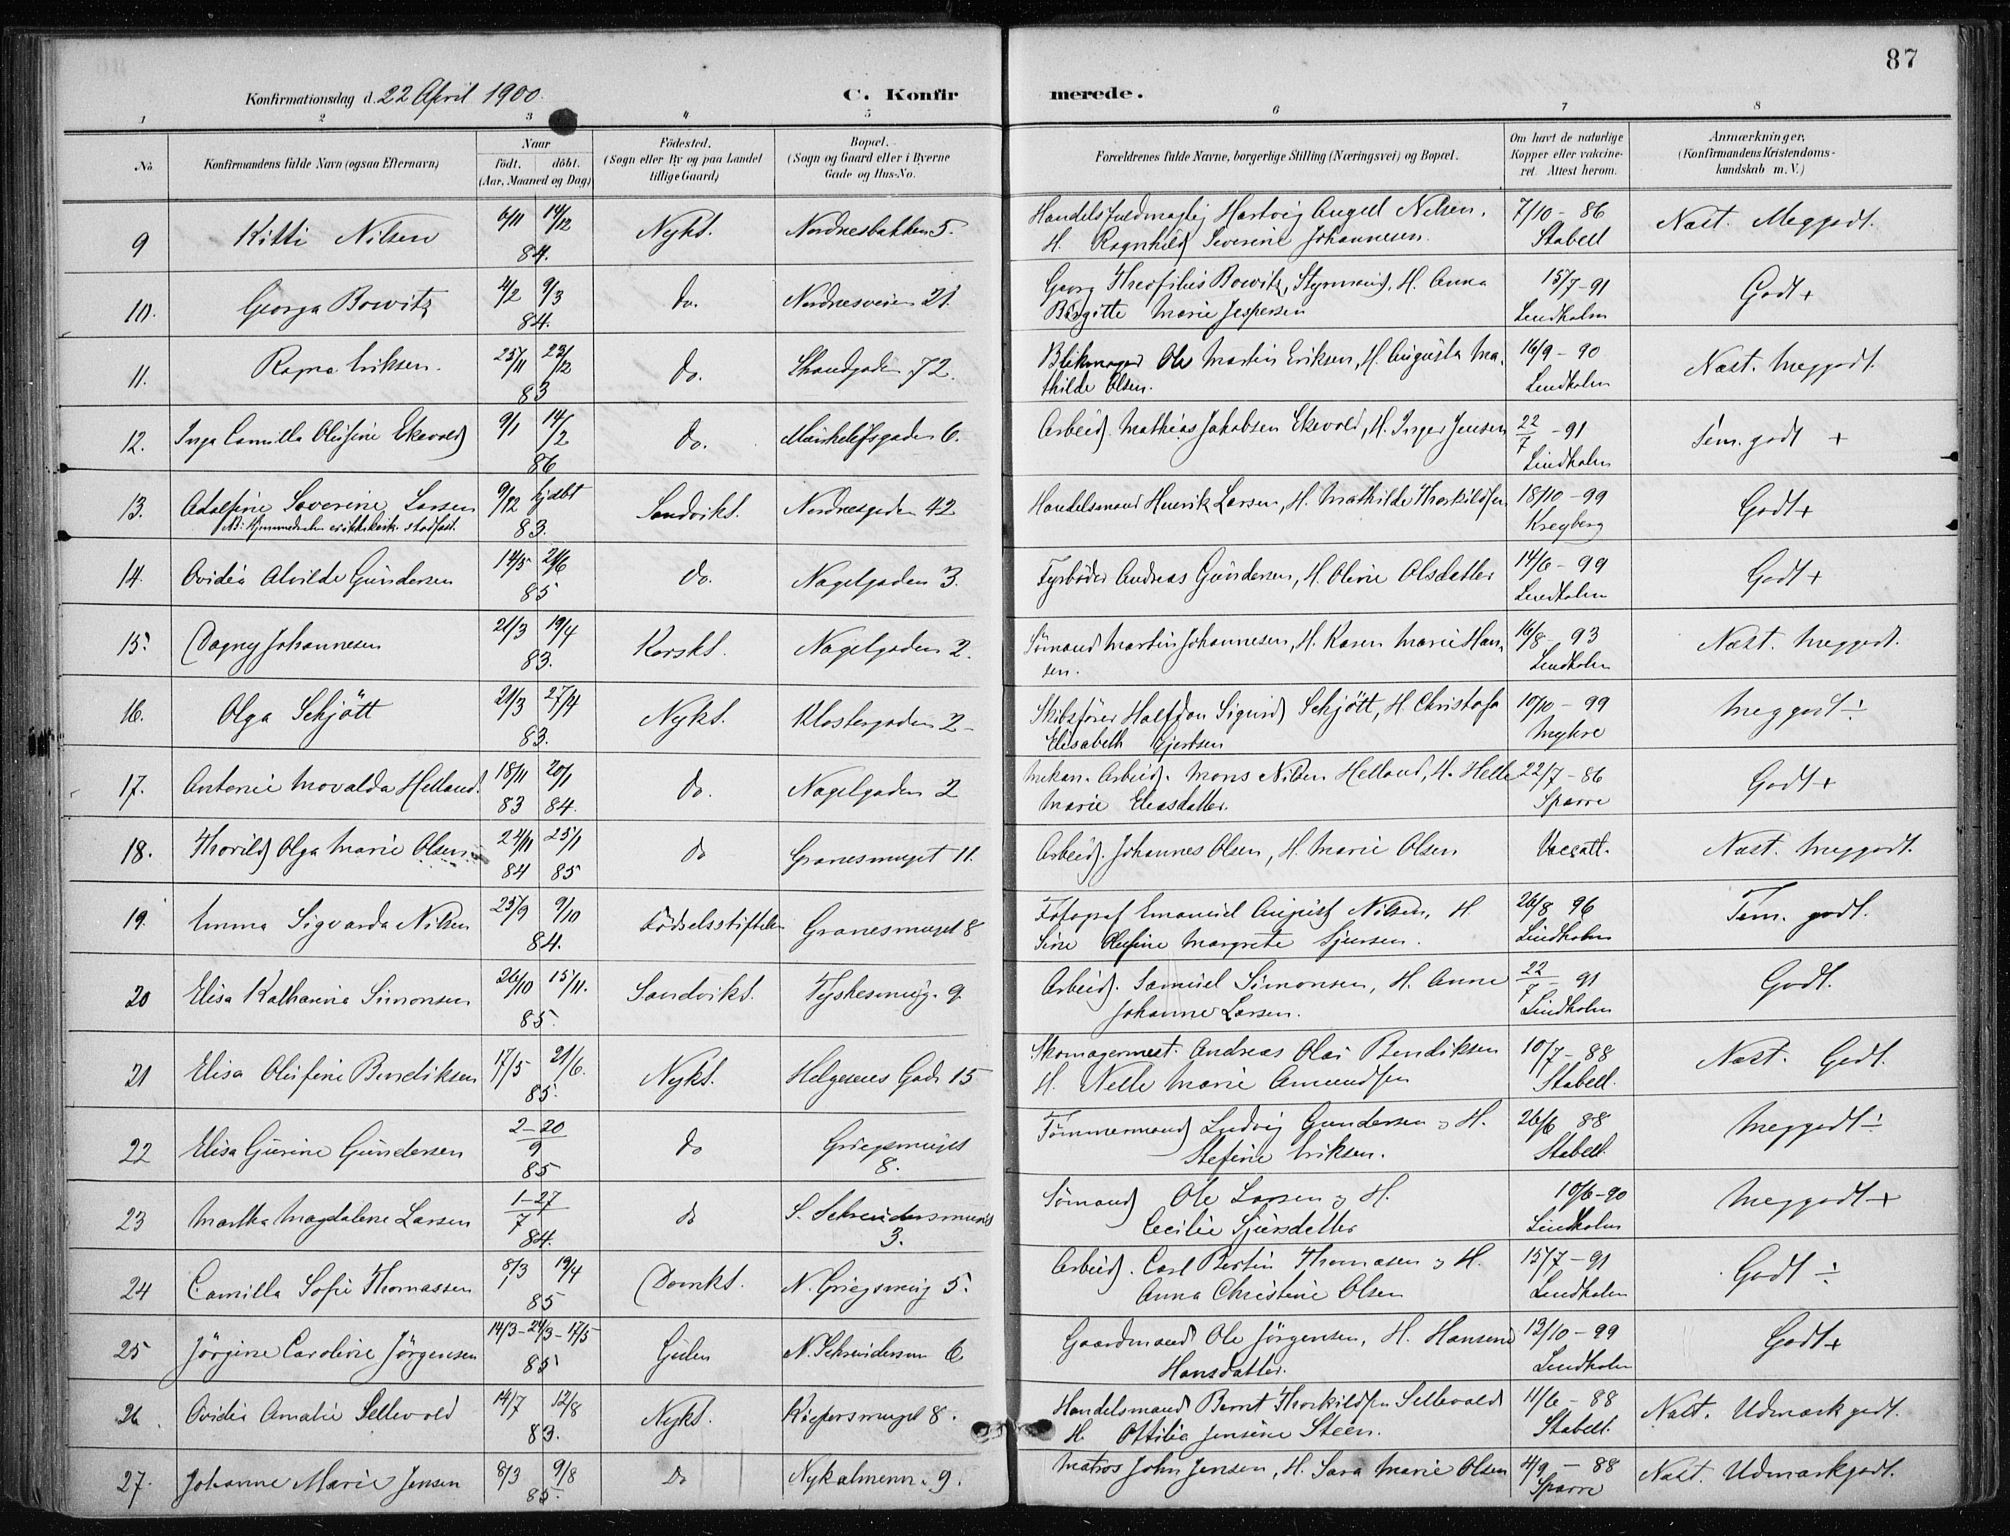 87
Konfirmationsdag d. 22 April 1900. C. Konfirmerede.
1 2 3 4 5 6 7 8
No. Konfirmandens fulde Navn (ogsaa Efternavn) Naar födt. döbt. (Aar, Maaned og Dag) Födested. (Sogn eller By og paa Landet tillige Gaard) Bopæl. (Sogn og Gaard eller i Byerne Gade og Hus-No. Forældrenes fulde Navne, borgerlige Stilling (Næringsvei) og Bopæl. Om havt de naturlige Kopper eller vakcineret. Attest herom. Anmærkninger, (Konfirmandens Kristendomskundskab m. V.)
9 Kitti Nilsen 6/11 14/12 84. Nykt. Nordnesbakken 5. Handelsfuldmægtig Hartvig Angell Nilsen, H. Ragnhild Severine Johannesen. 7/10 - 86 Stabell Næst. Meg godt.
10. Georga Bowitz 4/2 9/3 84. do. Nordnesveien 21. Georg Theofilus Bowitz, Styrmand, H. Anna Birgitte Marie Jespersen 15/7 - 91 Lindholm Godt +
11. Ragna Eriksen. 25/11 23/12 83 do. Strandgaden 72. Blikmager Ole Martin Eriksen, H. Augusta Mathilde Olsen. 16/9 - 90 Lindholm Næst. Meg godt.
12. Inga Camilla Olufine Ekevold 9/1 14/2 86 do. 6. Arbeid. Mathias Jakobsen Ekevold, H. Inger Jensen 22/7 - 91 Lindholm Tem. godt +
13. Adolfine Severine Larsen 9/12 hjdøbt 83. Sandvikt. Nordnesgaden 42 Handelsmand Henrik Larsen, H. Mathilde Thorkildsen 18/10 - 99 Kreyberg Godt +
14. Ovidia Alvilde Gundersen 14/5 21/6 85 do. Nagelgaden 3. Fyrbøder Andreas Gundersen, H. Oline Olsdatter 14/6 - 99 Lindholm Godt +
15. Dagny Johannesen 21/3 19/4 83. Korskt. Nagelgaden 2. Sømand Martin Johannesen, H. Karen Marie Hansen. 16/8 - 93 Lindholm Næst. Meg godt.
16. Olga Schjött 21/3 27/4 83. Nykt. Klostergaden 2 - Skibsfører Halfdan Sigurd Schjött, H. Christofa Elisabeth Ejertsen 10/10 - 99 Myhre Meg godt ÷
17. Antonie Movalda Helland. 18/11 20/1 83 84. do. Nagelgaden 2 Mekan. Arbeid. Mons Nilsen Helland, H. Helle Marie Eliasdatter. 22/7 - 86 Sparre Godt +
18. Thorild Olga Marie Olsen 24/11 25/1 84 85 do Granesmuget 11. Arbeid. Johannes Olsen, H. Marie Olsen Vacsatt. Næst. Meg godt.
19. Emma Sigvarda Nilsen 25/9 9/10 84. Fødselsstiftelsen Granesmuget 8 Fotograf Emanuel August Nilsen, H. Sine Olufine Margrete Sjursen. 26/8 96 Lindholm Tem. godt.
20 Elisa Katharina Simonsen 26/10 15/11. 85. Sandvikt. Tyskesmug. 9. Arbeid. Samuel Simonsen, H. Anne Johanne Larsen. 22/7 - 91 Lindholm Godt.
21 Elisa Olufine Bendiksen 17/5 21/6. 85. Nykt. Helgesens Gade 15 Skomagermest. Andreas Olai Bendiksen H. Nelle Marie Amundsen 10/7 - 88 Stabell. Næst. Godt.
22 Elisa Gurine Gundersen 2 - 20/9 85 do Griegsmuget 8. Tømmermand Ludvig Gundersen & H. Stefine Eriksen. 26/6 88 Stabell. Meg godt ÷
23 Martha Magdalene Larsen 1 - 27/7 84. do S. Schreudersmuget 3. Sømand Ole Larsen & H. Cecilie Sjursdatter 10/6 - 90 Lindholm Meg godt +
24 Camilla Sofie Thomassen 8/3 19/4 85 Domkt. N. Griegsmug 5. Arbeid. Carl Bertin Thomasen & H. Anna Christine Olsen 15/7 - 91 Lindholm Godt ÷
25 Jörgine Caroline Jörgensen 14/3 - 24/3 - 17/5 85 Gulen N. Schreudersm 6 Gaardmand Ole Jörgensen, H. Hansine Hansdatter. 13/10 - 99 Lindholm Godt +
26. Ovidia Amalie Sellevold 14/7 12/8 83. Nykt. 8. Handelsmand Bernt Thorkildsen Sellevold H. Ottilia Jensine Steen. 11/6 - 88 Stabell. Næst. Udmærk godt.
27. Johanne Marie Jensen 8/3 9/8 85. Do Nykalmenn. 9. Matros John Jensen, H. Sara Marie Olsen 4/9 - 88 Sparre Næst. Udmærkgodt.